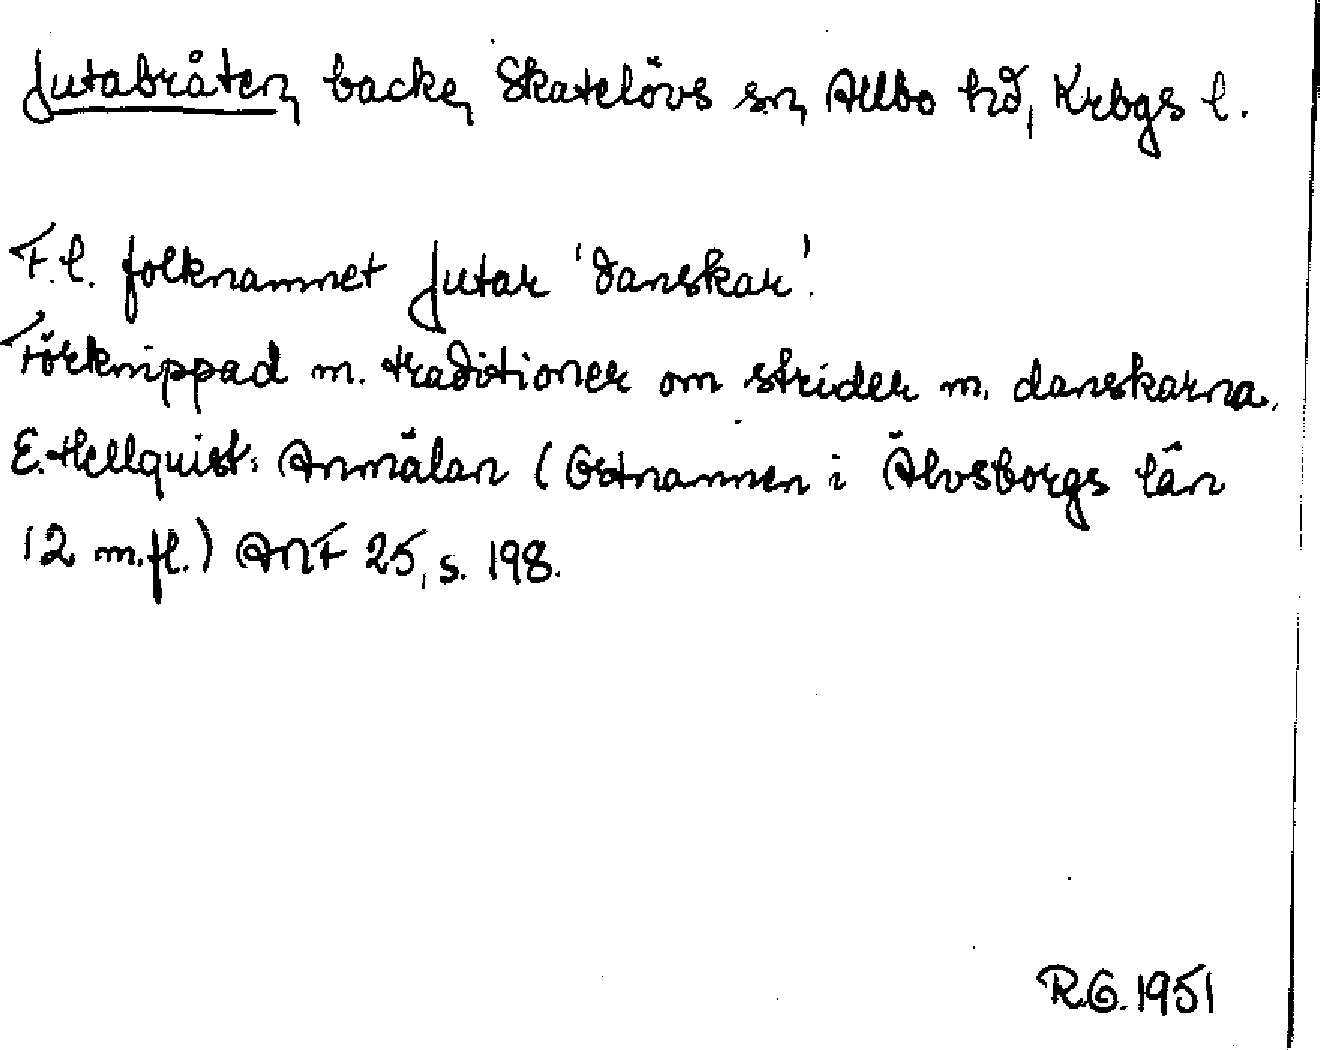 Jutabråten, backe, Skatelövs sn, Allbo hd, Krbgs l.
F.l. folknamnet Jutar 'danskar'.
Förknippad m. traditioner om strider m. danskarna.
E. Hellquist: Anmälan (Ortnamnen i Älvsborgs län
12 m.fl.) ANF 25, s. 198.
R.G. 1951